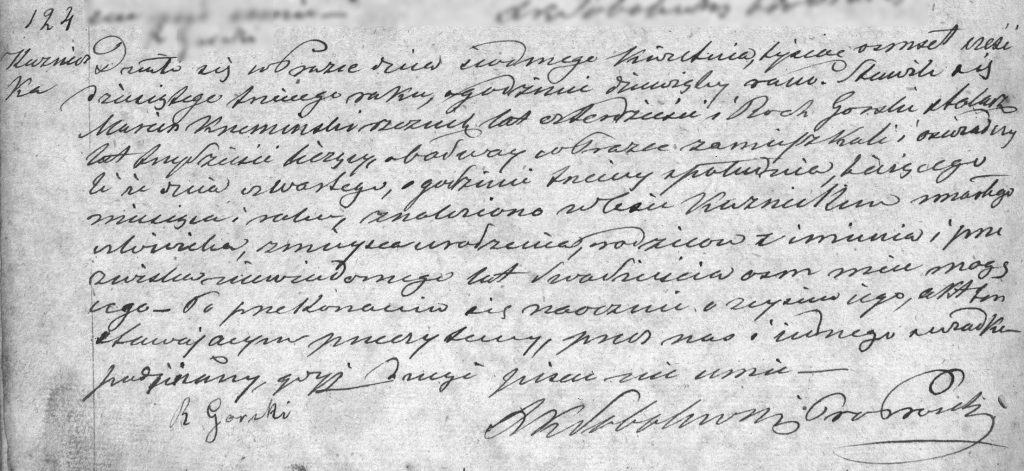 124
Kuźnicz
ka
Działo się w Brazec dnia siódmego Kwietnia, tysiąc osmset sześć
dziesiątego trzeciego roku, o godzinie dziewiątej rano. Stawili się
Marcin Krzemiński rzeznik lat czterdzieści i Roch Gorski stolarz
lat trzydzieści liczący, obadway w Brazec zamieszkali i oswiadczy
li że dnia czwartego, o godzinie trzeciey z południa, bieżącego
miesiąca i roku, znaleziono w lesie Kuznickim zmarłego
człowieka, z mieysca urodzenia, rodziców z imienia i prze
zwiska niewiadomego lat dwadzieścia osm mieć mogą
cego — Po przekonaniu się naocznie o zejściu jego, akt ten
stawającym przeczytany, przez nas i jednego świadka
podpisany, gdyż drugi pisac nie umie —
R Gorski
XK Sobolewski Proboszcz